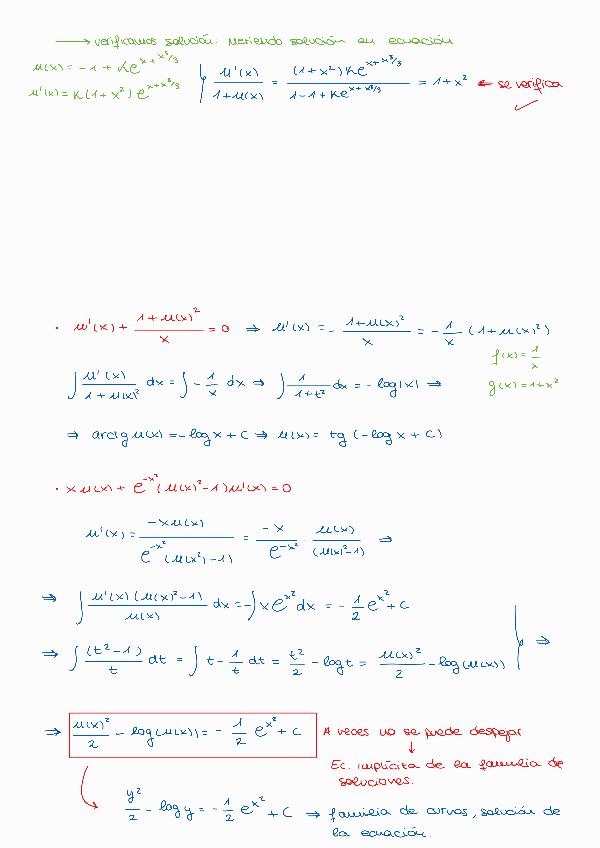 ⟶ verificamos solución. Metiendo solución en ecuación
u(x) = -1 + Ke^{x+x³/3}
u'(x) = K(1+x²)e^{x+x³/3}
u'(x)/(1+u(x)) = (1+x²)Ke^{x+x³/3}/(1-1+Ke^{x+x³/3}) = 1+x² ← se verifica ✓
· u'(x) + (1+u(x)²)/x = 0 ⇒ u'(x) = -(1+u(x)²)/x = -1/x (1+u(x)²)
f(x) = 1/x
g(x) = 1+x²
∫ u'(x)/(1+u(x)²) dx = ∫ -1/x dx ⇒ ∫ 1/(1+t²) dx = -log|x| ⇒
⇒ arctg u(x) = -log x + C ⇒ u(x) = tg (-log x + C)
· x u(x) + e^{-x²} (u(x)²-1) u'(x) = 0
u'(x) = -x u(x)/(e^{-x²} (u(x²)-1)) = -x/e^{-x²} u(x)/(u(x)²-1) ⇒
⇒ ∫ u'(x) (u(x)²-1)/u(x) dx = -∫ x e^{x²} dx = -1/2 e^{x²} + C
⇒ ∫ (t²-1)/t dt = ∫ t - 1/t dt = t²/2 - log t = u(x)²/2 - log(u(x)) ⇒
⇒ u(x)²/2 - log(u(x)) = -1/2 e^{x²} + C
A veces no se puede despejar
↓
Ec. implícita de la familia de
soluciones.
y²/2 - log y = -1/2 e^{x²} + C ⇒ familia de curvas, solución de
la ecuación.